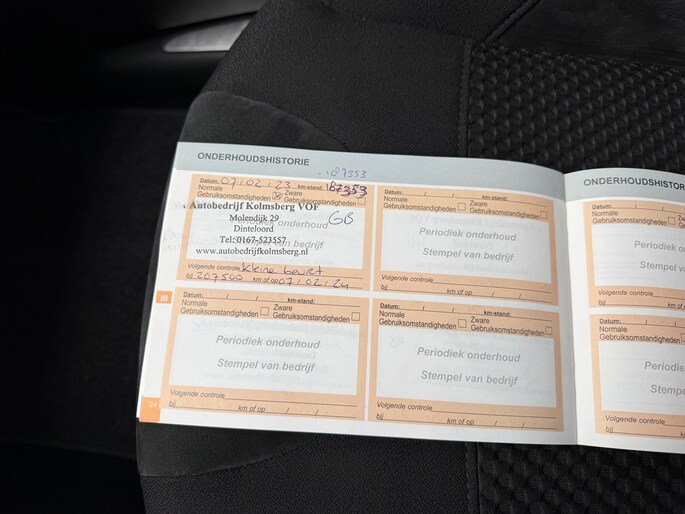 ONDERHOUDSHISTORIE
187353
Datum: 07/02/23 km-stand: 187353
Normale Gebruiksomstandigheden Zware Gebruiksomstandigheden
Autobedrijf Kolmsberg VOF
Molendijk 29 GB
Dinteloord
Tel: 0167-523557
www.autobedrijfkolmsberg.nl
Volgende controle kleine beurt
bij 207500 km of op 07/02/24
Datum: / / km-stand:
Normale Gebruiksomstandigheden Zware Gebruiksomstandigheden
Periodiek onderhoud
Stempel van bedrijf
Volgende controle
bij km of op / /
III
Datum: / / km-stand:
Normale Gebruiksomstandigheden Zware Gebruiksomstandigheden
Periodiek onderhoud
Stempel van bedrijf
Volgende controle
bij km of op / /
Datum: / / km-stand:
Normale Gebruiksomstandigheden Zware Gebruiksomstandigheden
Periodiek onderhoud
Stempel van bedrijf
Volgende controle
bij km of op / /
24
ONDERHOUDSHISTOR
Datum: / /
Normale Gebruiksomstandigheden
Periodiek
Stempel v
Volgende controle
bij km
Datum: / /
Normale Gebruiksomstandigheden
Periodie
Stempel
Volgende controle
bij km